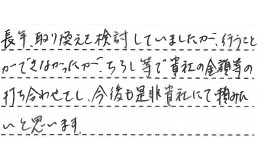 長年、取り換えを検討していましたが、行うこと
ができなかったが、ちらし等で貴社の金額等の
打ち合わせをし、今後も是非貴社にて頼みた
いと思います。